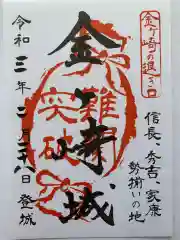 金ヶ崎の退き口
信長、秀吉、家康
勢揃いの地
金ヶ崎城
難関
突破
令和三年二月二八日登城